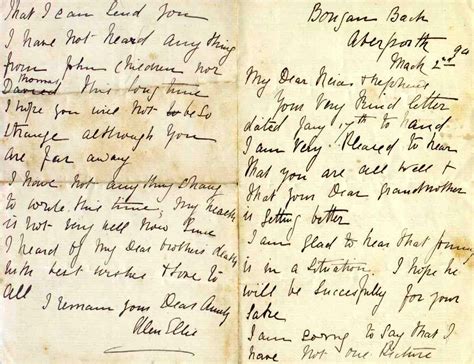 Bongan Bach
Aberporth
March 2nd 90
My Dear Neice & Nephews
Your Very Kind letter
dated Jany 17th to hand
I am Very Pleased to hear
that you are all well &
that your Dear Grandmother
is getting better
I am glad to hear that
is in a Situation. I hope he
will be Succesfully for your
Sake
I am sorry to say that I
have not one Picture
that I can lend you
I have not heard any thing
from John Chicohen nor
David Thomas this long time
I hope you will not to be So
Strange although You
are far away
I have not any thing
to write this time, My health
is not very well now since
I heard of My Dear brothers death
with best wishes & love to
all
I remain your Dear Aunty
Ellen Ellis